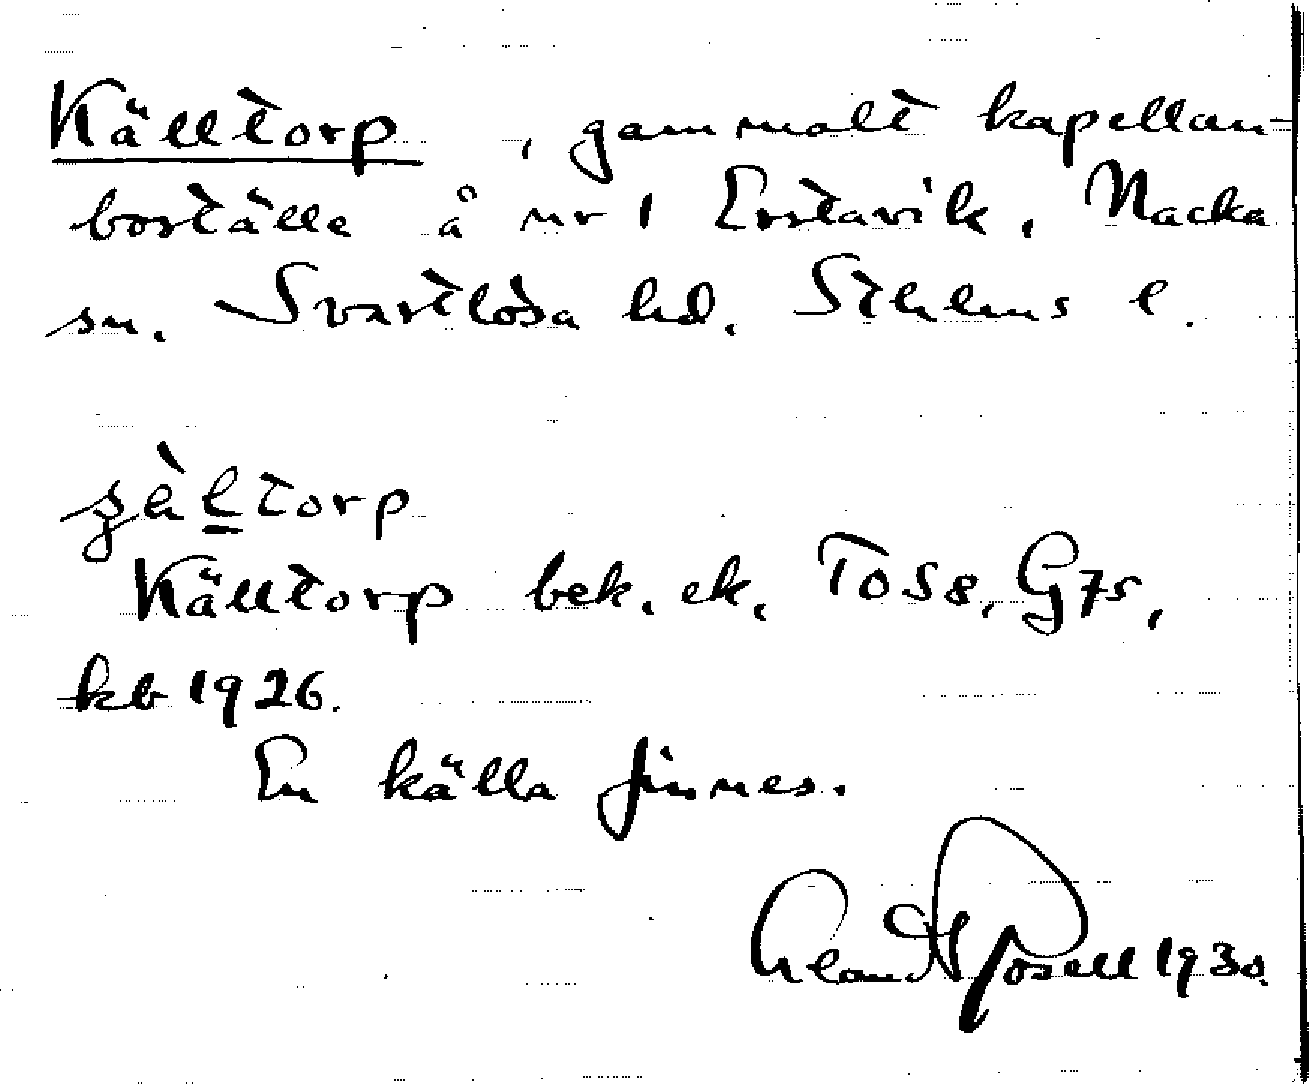 Källtorp, gammalt kapellan-
boställe å nr 1 Erstavik, Nacka
sn. Svartlösa hd. Sthlms l.
Källtorp bek. ek. To S8, G75,
kb 1926.
En källa finnes.
1930.